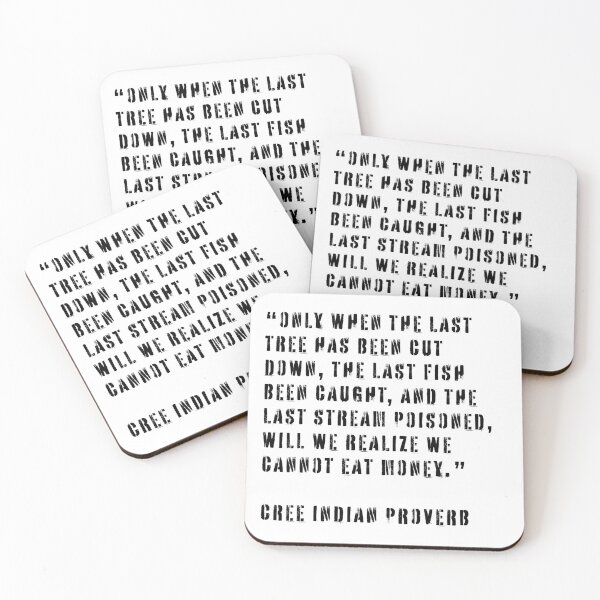 “ONLY WHEN THE LAST
TREE HAS BEEN CUT
DOWN, THE LAST FISH
BEEN CAUGHT, AND THE
LAST STREAM POISONED
WE
“ONLY WHEN THE LAST
TREE HAS BEEN CUT
DOWN, THE LAST FISH
BEEN CAUGHT, AND THE
LAST STREAM POISONED,
WILL WE REALIZE WE
CANNOT EAT MONEY.”
“ONLY WHEN THE LAST
TREE HAS BEEN CUT
DOWN, THE LAST FISH
BEEN CAUGHT, AND THE
LAST STREAM POISONED,
WILL WE REALIZE WE
CANNOT EAT MONE
CREE INDIAN PR
“ONLY WHEN THE LAST
TREE HAS BEEN CUT
DOWN, THE LAST FISH
BEEN CAUGHT, AND THE
LAST STREAM POISONED,
WILL WE REALIZE WE
CANNOT EAT MONEY.”
CREE INDIAN PROVERB